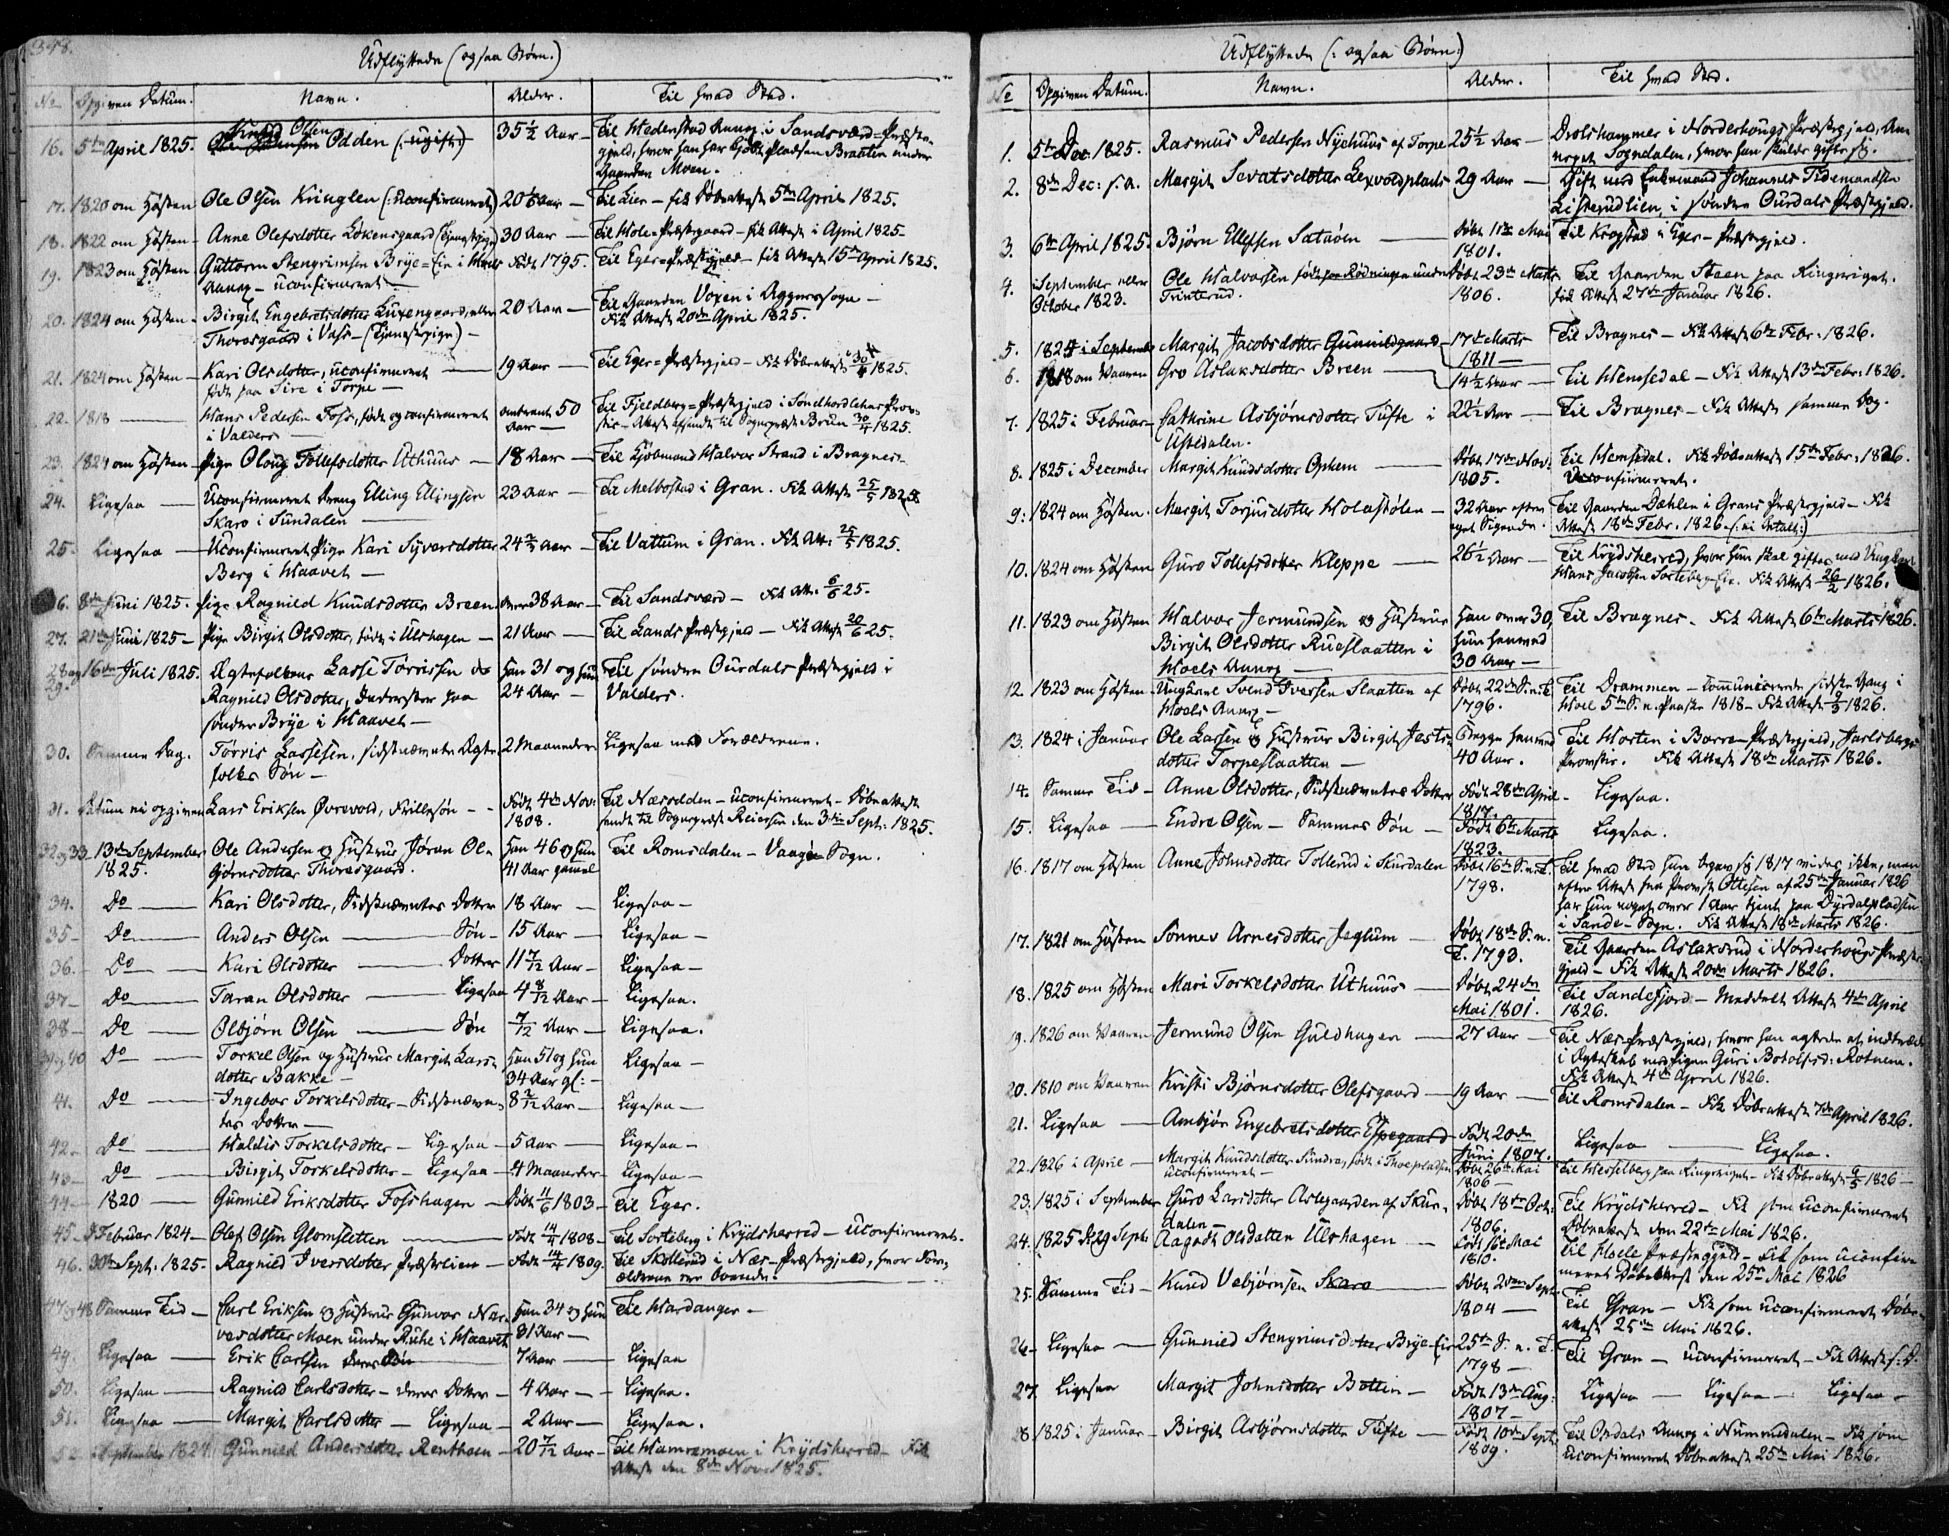 348.
Udflyttede (ogsaa Børn.)
No Opgiven Datum. Navn. Alder. Til hvad Sted.
16. 5te April 1825. Olsen Odden (: ugift:) 35½ Aar — Til Hedenstad Annex i Sandsværd=Præste-
gjeld, hvor han har kjøbt Pladsen Braaten under
Gaarden Moen.
17. 1820 om Høsten Ole Olsen Kringlen (: Uconfirmeret) 20 Aar — Til Lier — fik Døbeattest 5te April 1825.
18. 1822 om Høsten — Anne Olefsdotter Løkensgaard (Tjenestpige) 30 Aar — Til Hole=Præstegaard — fik Attest i April 1825.
19. 1823 om Høsten — Guttorm Stengrimsen Brye=Eie i
Annex — uconfirmeret — Født 1795. Til Eger=Præstgjeld — fik Attest 15de April 1825.
20. 1824 om Høsten — Birgit Engebretsdotter Luxengaard, eller 20 Aar — Til Gaarden Voxen i Aggerssogn —
Thorosgaard i Vass — (Tjenestepige) — Fik Attest 20de April 1825.
21. 1824 om Høsten — Kari Olsdotter, uconfirmeret — 19 Aar — Til Eger=Præstgjeld — Fik Døbeattest 30/4 1825.
født paa Sire i Torpe —
22. 1818 — Hans Pedersen Foss, født og confirmeret omtrent 50 Til Fjeldberg=Præstgjeld i Søndhordlehns Prov-
i Valders — Aar — stie — Attest afsendt til Sognepræst Bruun 30/4 1825.
23. 1824 om Høsten — Pige Oloug Tollefsdotter Uthuus — 18 Aar — Til Kjøbmand Halvor Strand i Bragnes.
24. Ligesaa — Uconfirmeret Dreng Elling Ellingsen 23 Aar — Til Melbostad i Gran. Fik Attest 25/5 1825.
Skaro i Sundalen —
25. Ligesaa — Uconfirmeret Pige Kari Syversdotter 24 Aar — Til Vattum i Gran. Fik Att: 25/5 1825.
Berg i Haavet —
26. 8de Juni 1825. Pige Ragnild Knudsdotter Breen 38 Aar — Til Sandsværd — Fik Att. 6/6 25.
27. 21de Juni 1825 — Pige Birgit Olsdotter, født i Ulshagen — 21 Aar — Til Lands Præstgjeld — Fik Attest 20/6 25.
28 og 29. 16de Juli 1825. Ægtefolkene Lasse Tørrissen og Han 31 og Hun Til søndre Ourdals Præstgjeld i
Ragnild Olsdotter, Inderster paa 24 Aar — Valders.
søndre Brye i Haavet —
30. Samme Dag. Tørris Lassesen, sidstnævnte Ægte- 2 Maaneder Ligesaa med Forældrene.
folks Søn —
31. Datum ei opgiven Lars Eriksen Øvrevold, Frillesøn — Født 4de Nov: Til Næsodden — uconfirmeret — Døbeattest
1808. sendt til Sognepræst Reiersen den 3die Sept: 1825.
32 og 33. 13de September Ole Andersen og Hustrue Jøran Ol- Han 46 og Hun Til Romsdalen — Vaagøe Sogn.
1825. Bjørnsdotter Thorosgaard. 41 Aar gammel
34. Do — Kari Olsdotter, Sidstnævntes Dotter 18 Aar — Ligesaa —
35 — Do — Anders Olsen — Søn — 15 Aar — Ligesaa —
36. Do — Kari Olsdotter — Dotter 11 7/12 Aar — Ligesaa —
37 — Do — Taran Olsdotter — Ligesaa 4 8/12 Aar — Ligesaa.
38 — Do — Olbjørn Olsen — Søn 7/12 Aar — Ligesaa.
39 og 40 Do — Torkel Olsen og Hustrue Margit Lars- Han 51 og Hun Ligesaa —
dotter Bakke — 34 Aar gl: —
41. Do — Ingebor Torkelsdotter — Sidstnævn- 8 2/12 Aar — Ligesaa —
tes Dotter —
42. Do — Haldis Torkelsdotter — Ligesaa — 5 Aar — Ligesaa —
43 — Do — Birgit Torkelsdotter — Ligesaa — 4 Maaneder Ligesaa —
44 — 1820 — Gunnild Eriksdotter Fosshagen — Døbt 11/6 1803 — Til Eger.
45 — Februar 1824 — Olef Olsen Glomsletten — Født 14/4 1808 — Til Sorteberg i Krydsherred — uconfirmeret.
46. 30te Sept: 1825 — Ragnild Iversdotter Præstlien — Født 14/4 1809. Til Skollerud i Næs-Præstgjeld, hvor For-
ældrene ere boende.
47 og 48 Samme Tid — Carl Eriksen og Hustrue Gunvor Nar- Han 34 og Hun Til Hardanger —
vesdotter Moen under Ruhe i Haavet 31 Aar —
49. Ligesaa — Erik Carlsen deres Søn 7 Aar — Ligesaa
50. Ligesaa — Ragnild Carlsdotter — deres Dotter — 4 Aar — Ligesaa.
51. Ligesaa — Margit Carlsdotter — Ligesaa — 2 Aar — Ligesaa.
52. September 1824. Gunnild Andersdotter Renthoen — 20 7/12 Aar — Til Hamremoen i Krydsherred — Fik
Attest den 8de Novbr 1825.
Udflyttede (: ogsaa Børn:)
No Opgiven Datum. Navn. Alder. Til hvad Sted.
1. 5te Dec 1825. Rasmus Pedersen Nyehuus af Torpe 25½ Aar — Drolshammer i Norderhougs Præstgjeld, An-
nexet Sogndalen, hvor han skulde gifte sig.
2. 8de Dec: s.a. Margit Sevatsdotter Lexvoldplads 29 Aar — Gift med Enkemand Johannes Tidemandsen
Listerudlien, i søndre Ourdals Præstgjeld.
3. 6te April 1825. Bjørn Ellefsen Sataøen — Døbt 11te Mai Til Krogstad i Eger-Præstgjeld.
1801.
4. i September eller Ole Halvorsen født paa Rødningen under Døbt 23de Marts Til Gaarden Steen paa Ringeriget.
October 1823. Trinterud. 1806. fik Attest 27de Januar 1826.
5. 1825 i September Margit Jacobsdotter Gunnildsgaard — 17de Marts Til Bragnes — Fik Attest 6te Febr: 1826.
1811 —
6. 1818 om Vaaren Gro Aslaksdotter Breen — 14½ Aar — Til Hemsedal — Fik Attest 13de Febr: 1826.
7. 1825 i Februar — Cathrine Asbjørnsdotter Tufte i 22½ Aar — Til Bragnes — Fik Attest samme Dag.
Ustedalen.
8. 1825 i December Margit Knudsdotter Ophem — Døbt 17de Nov: Til Hemsedal. Fik Døbeattest 15de Febr: 1826.
1805. Uconfirmeret.
9. 1824 om Høsten. Margit Torjusdotter Holastølen — 32 Aar efter Til Gaarden Dæhlen i Grans Præstgjeld — Fik
eget Sigende. Attest 18de Febr: 1826
10. 1824 om Høsten Guro Tollefsdotter Kleppe — 26½ Aar — Til Krydsherred, hvor hun skal giftes med Ungkarl
Hans Jacobsen Sorteberg-Eie. Fik Attest 26/2 1826.
11. 1823 om Høsten Halvor Jermundsen og Hustrue Han over 30, Til Bragnes. Fik Attest 6te Marts 1826.
Birgit Olsdotter Rueslaatten i Hun henved
Hoels Annex — 30 Aar —
12. 1823 om Høsten Ungkarl Svend Iversen Slaatten af Døbt 22de S.n.T. Til Drammen — Communicerede sidste Gang i
Hoels Annex — 1796. Hoel 5te S.n. Paaske 1818 — Fik Attest 9/3 1826.
13. 1824 i Januar Ole Larsen og Hustrue Birgit Josts- Begge henved Til Horten i Borre-Præstgjeld, Jarlsbergs
dotter Torpeslaatten — 40 Aar. Provstie. Fik Attest 18de Marts 1826.
14. Samme Tid — Anne Olsdotter, Sidstnævntes Dotter Født 28de April — Ligesaa.
1817.
15. Ligesaa — Endre Olsen — Sammes Søn — Født 6te Marts Ligesaa.
1823.
16. 1817 om Høsten Anne Johnsdotter Tollerud i Skurdalen Døbt 16de S.n.T. Til hvad Sted hun begav sig 1817 vides ikke, men
1798. efter Attest fra Provst Ottesen af 25de Januar 1826
har hun noget over 1 Aar tjent paa Dyrdalpladsen
i Sande-Sogn. Fik Attest 18de Marts 1826.
17. 1821 om Høsten Sønnev Arnesdotter Jeglum — Døbt 18de S.n. Til Gaarden Aslaksrud i Norderhougs Præst-
T. 1793. gjeld — Fik Attest 20de Marts 1826.
18. 1825 om Høsten Mari Torkelsdotter Uthuus — Døbt 24de Til Sandefjord — Meddelt Attest 4de April
Mai 1801. 1826.
19. 1826 om Vaaren Jermund Olsen Guldhagen — 27 Aar — Til Næs-Præstgjeld, hvor han agtede at indtræde
i Ægteskab med Pigen Guri Botolfsd: Rotnem.
Fik Attest 4de April 1826.
20. 1810 om Vaaren Kristi Bjørnsdotter Olefsgaard — 19 Aar — Til Romsdalen — Fik Døbeattest 7de April 1826.
21. Ligesaa — Ambjør Engebretsdotter Espegaard Født 20de Ligesaa — Ligesaa.
Juni 1807.
22. 1826 i April — Margit Knudsdotter Sundre, født i Thoepladsen Døbt 26de Mai Til Hesselberg paa Ringeriget — Fik Døbeattest 9/5 1826 —
uconfirmeret — 1806 —
23. 1825 i September Guro Larsdotter Aslegaarden af Skur- Døbt 18de Oct: Til Krydsherred — Fik som uconfirmeret
dalen — 1806. Døbeattest den 22de Mai 1826.
24. 1825 d: 29 Sept: Aagodt Olsdatter Ulshagen — Født 16de Mai Til Hole Præstegjeld — Fik som uconfir-
1810. meret Døbeattest den 25de Mai 1826
25. Samme Tid — Knud Vebjørnsen Skaro Døbt 2den Sept: Til Gran — Fik som uconfirmeret Døbe-
1804 — attest 25de Mai 1826.
26 — Ligesaa — Gunnild Stengrimsdotter Brye-Eie 25de S. n. T. Til Gran — uconfirmeret — Fik Attest s. D.
1798 —
27. Ligesaa Margit Johnsdotter Bottin — Født 13de Aug: Ligesaa — Ligesaa — Ligesaa —
1807 —
28. 1825 i Januar — Birgit Asbjørnsdotter Tufte — Født 10de Sept: Til Opdals Annex i Nummedalen — Fik som
1809. uconfirmeret Døbeattest 25de Mai 1826.